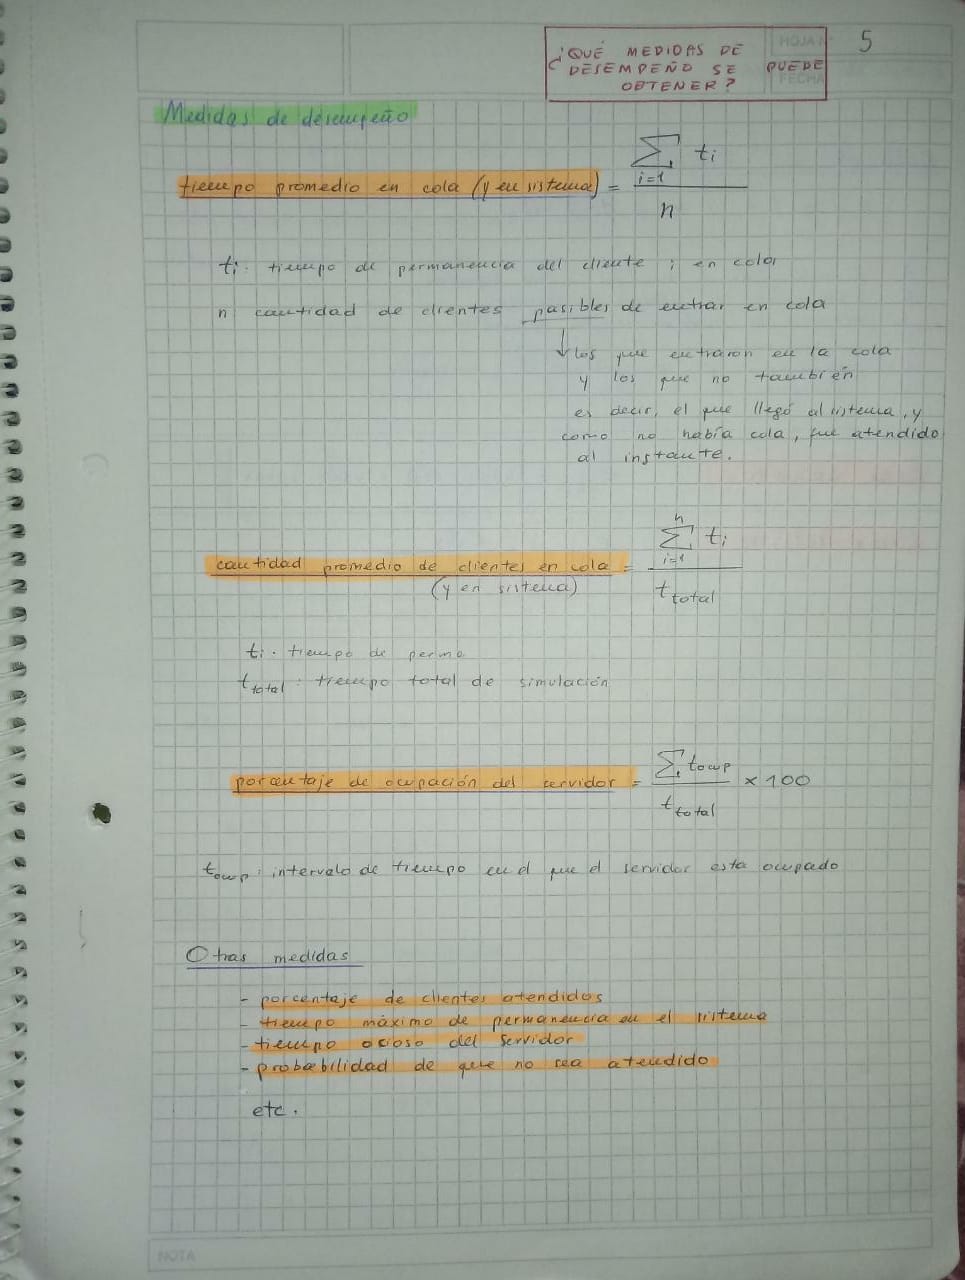 HOJA N
FECHA
5
¿QUÉ MEDIDAS DE
DESEMPEÑO SE PUEDE
OBTENER?
Medidas de desempeño
tiempo promedio en cola (y en sistema) = ∑ i=1 ti / n
ti: tiempo de permanencia del cliente i en cola
n cantidad de clientes pasibles de entrar en cola
↓ los que entraron en la cola
y los que no también
es decir, el que llegó al sistema, y
como no había cola, fue atendido
al instante.
cantidad promedio de clientes en cola = ∑ i=1 n ti / t total
(y en sistema)
ti: tiempo de perma
t total: tiempo total de simulación
porcentaje de ocupación del servidor = ∑ tocup / t total × 100
tocup: intervalo de tiempo en el que el servidor esta ocupado
Otras medidas
- porcentaje de clientes atendidos
- tiempo máximo de permanencia en el sistema
- tiempo ocioso del servidor
- probabilidad de que no sea atendido
etc.
NOTA